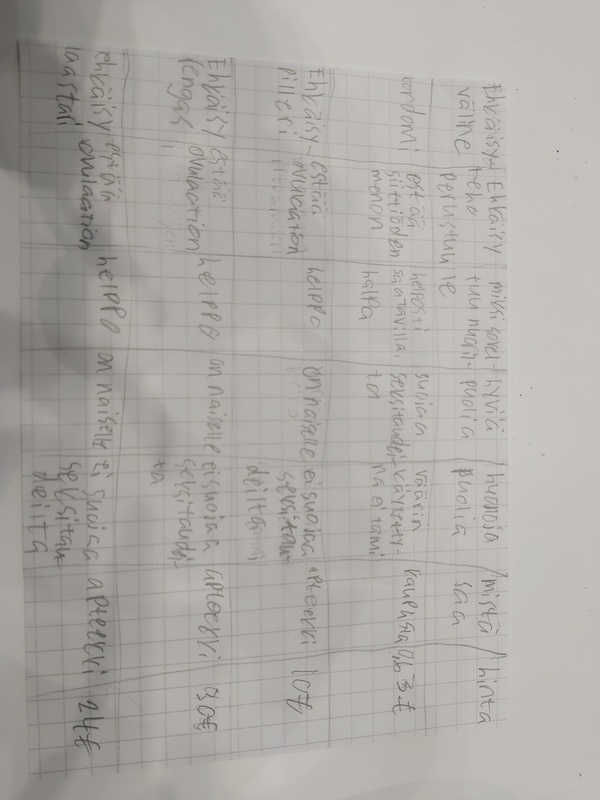 Ehkäisy-
väline
Ehkäisy
teho
perustuu
miksi sovel-
tuu nuoril-
le
hyviä
puolia
huonoja
puolia
mistä
saa
hinta
kondomi
estää
siittiöden
menon
helposti
saatavilla,
halpa
suojaa
seksitaudei-
ta
väärin
käytetty-
nä ei toimi
kaupasta
0,6-3€
Ehkäisy-
pilleri
estää
ovulaation
helppo
on naiselle
ei suojaa
seksitau-
deilta
apteekki
10€
Ehkäisy
rengas
estää
ovulaation
helppo
on naiselle
ei suojaa
seksitaudi-
ta
apteekki
30€
ehkäisy
laastari
estää
ovulaation
helppo
on naiselle
ei suojaa
seksitau
deilta
apteekki
24€